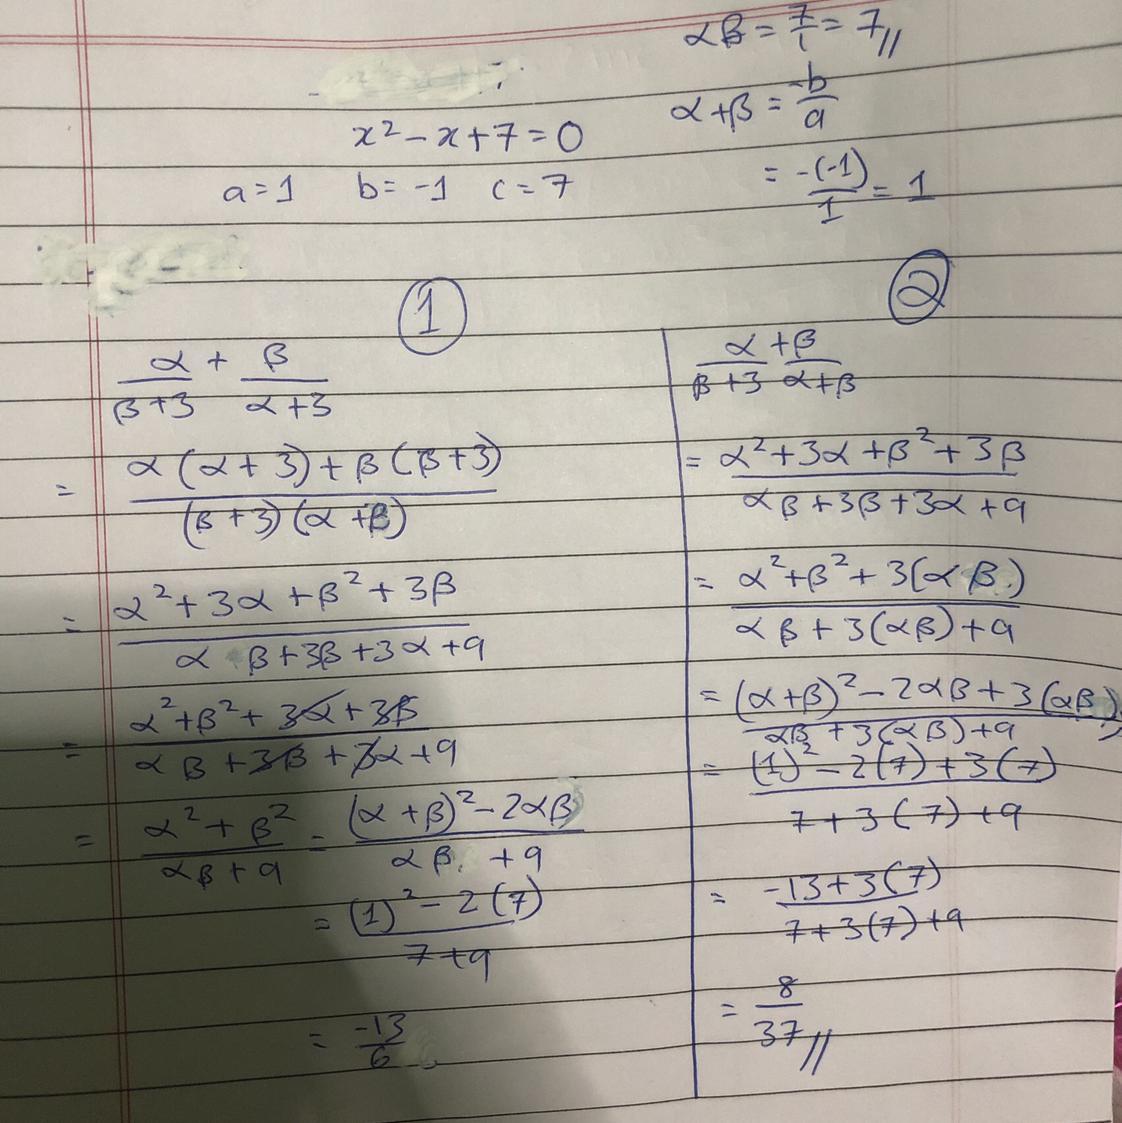 αβ = 7/1 = 7//
x² - x + 7 = 0
α + β = -b/a
a = 1 b = -1 c = 7
= -(-1)/1 = 1
①
α/(β+3) + β/(α+3)
= (α(α+3) + β(β+3))/((β+3)(α+β))
= (α² + 3α + β² + 3β)/(αβ + 3β + 3α + 9)
= (α² + β² + 3α + 3β)/(αβ + 3β + 3α + 9)
= (α² + β²)/(αβ + 9) = ((α+β)² - 2αβ)/(αβ + 9)
= ((1)² - 2(7))/(7+9)
= -13/6
②
α/(β+3) + β/(α+β)
= (α² + 3α + β² + 3β)/(αβ + 3β + 3α + 9)
= (α² + β² + 3(αβ))/(αβ + 3(αβ) + 9)
= ((α+β)² - 2αβ + 3(αβ))/(αβ + 3(αβ) + 9)
= ((1)² - 2(7) + 3(7))/(7 + 3(7) + 9)
= (-13 + 3(7))/(7 + 3(7) + 9)
= 8/37//